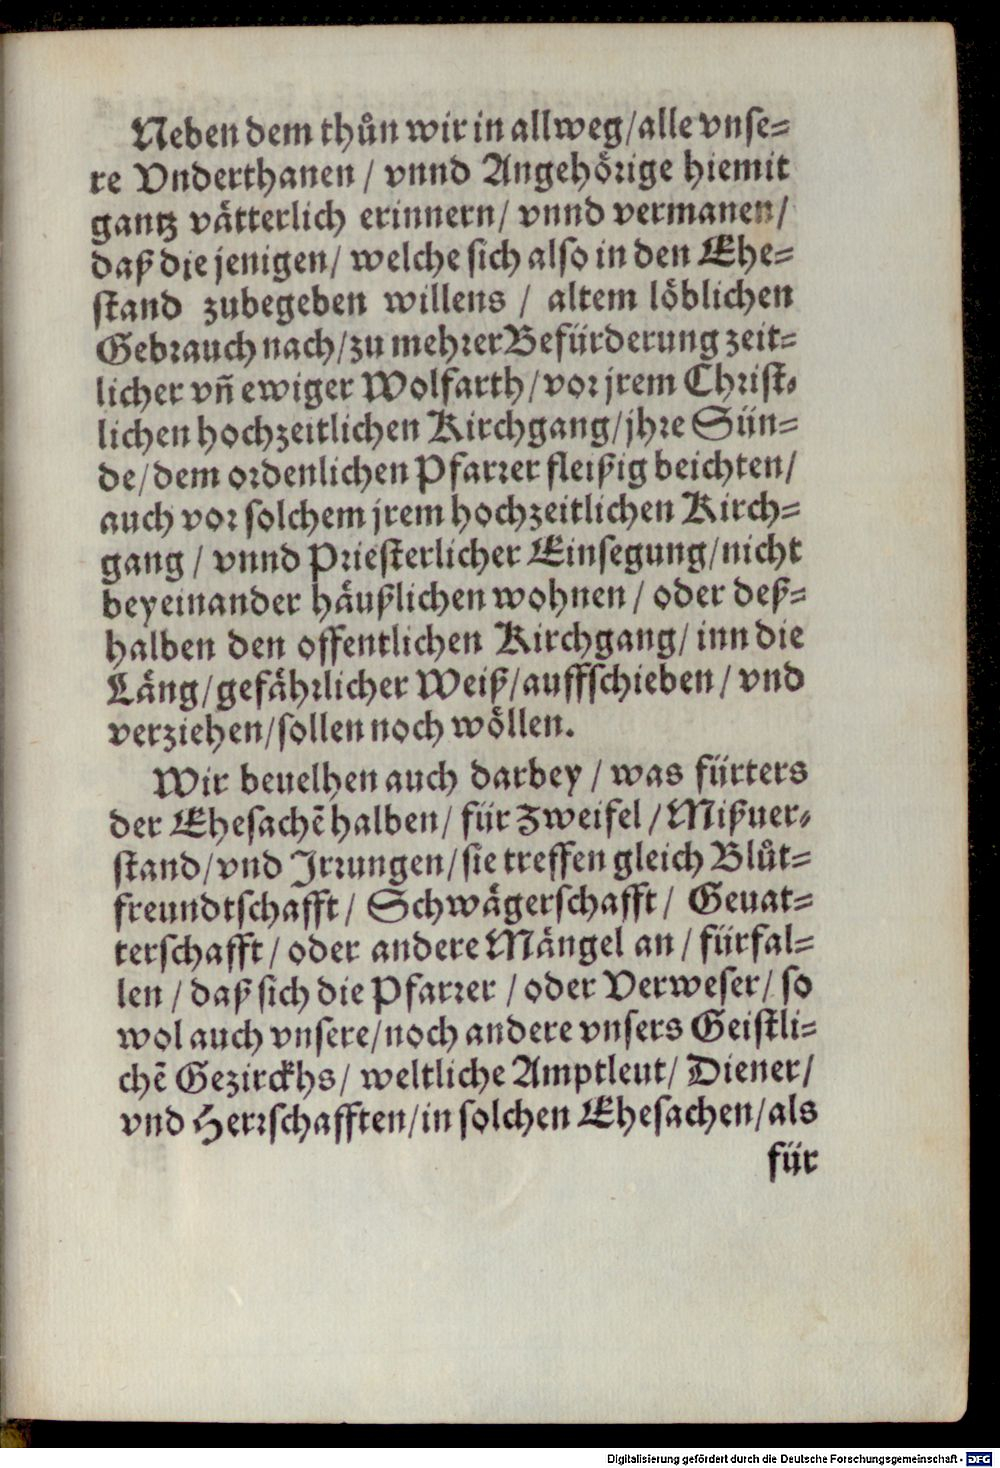 Neben dem thůn wir in allweg/alle vnse=
re Vnderthanen / vnnd Angehörige hiemit
gantz vätterlich erinnern/ vnnd vermanen/
daß die jenigen/ welche sich also in den Ehe=
stand zubegeben willens / altem löblichen
Gebrauch nach/zu mehrer Befürderung zeit=
licher vn̄ ewiger Wolfarth/vor jrem Christ=
lichen hochzeitlichen Kirchgang/jhre Sün=
de/dem ordenlichen Pfarrer fleißig beichten/
auch vor solchem jrem hochzeitlichen Kirch=
gang / vnnd Priesterlicher Einsegung/nicht
beyeinander häußlichen wohnen / oder deß=
halben den offentlichen Kirchgang/ inn die
Läng/gefährlicher Weiß/auffschieben / vnd
verziehen/sollen noch wöllen.
Wir beuelhen auch darbey / was fürters
der Ehesachē halben/ für Zweifel / Mißuer=
stand/vnd Irrungen/sie treffen gleich Blůt=
freundtschafft/ Schwägerschafft/ Geuat=
terschafft/ oder andere Mängel an / fürfal=
len / daß sich die Pfarrer / oder Verweser/ so
wol auch vnsere/noch andere vnsers Geistli=
chē Gezirckhs/ weltliche Amptleut/ Diener/
vnd Herrschafften/in solchen Ehesachen/als
für
Digitalisierung gefördert durch die Deutsche Forschungsgemeinschaft - DFG